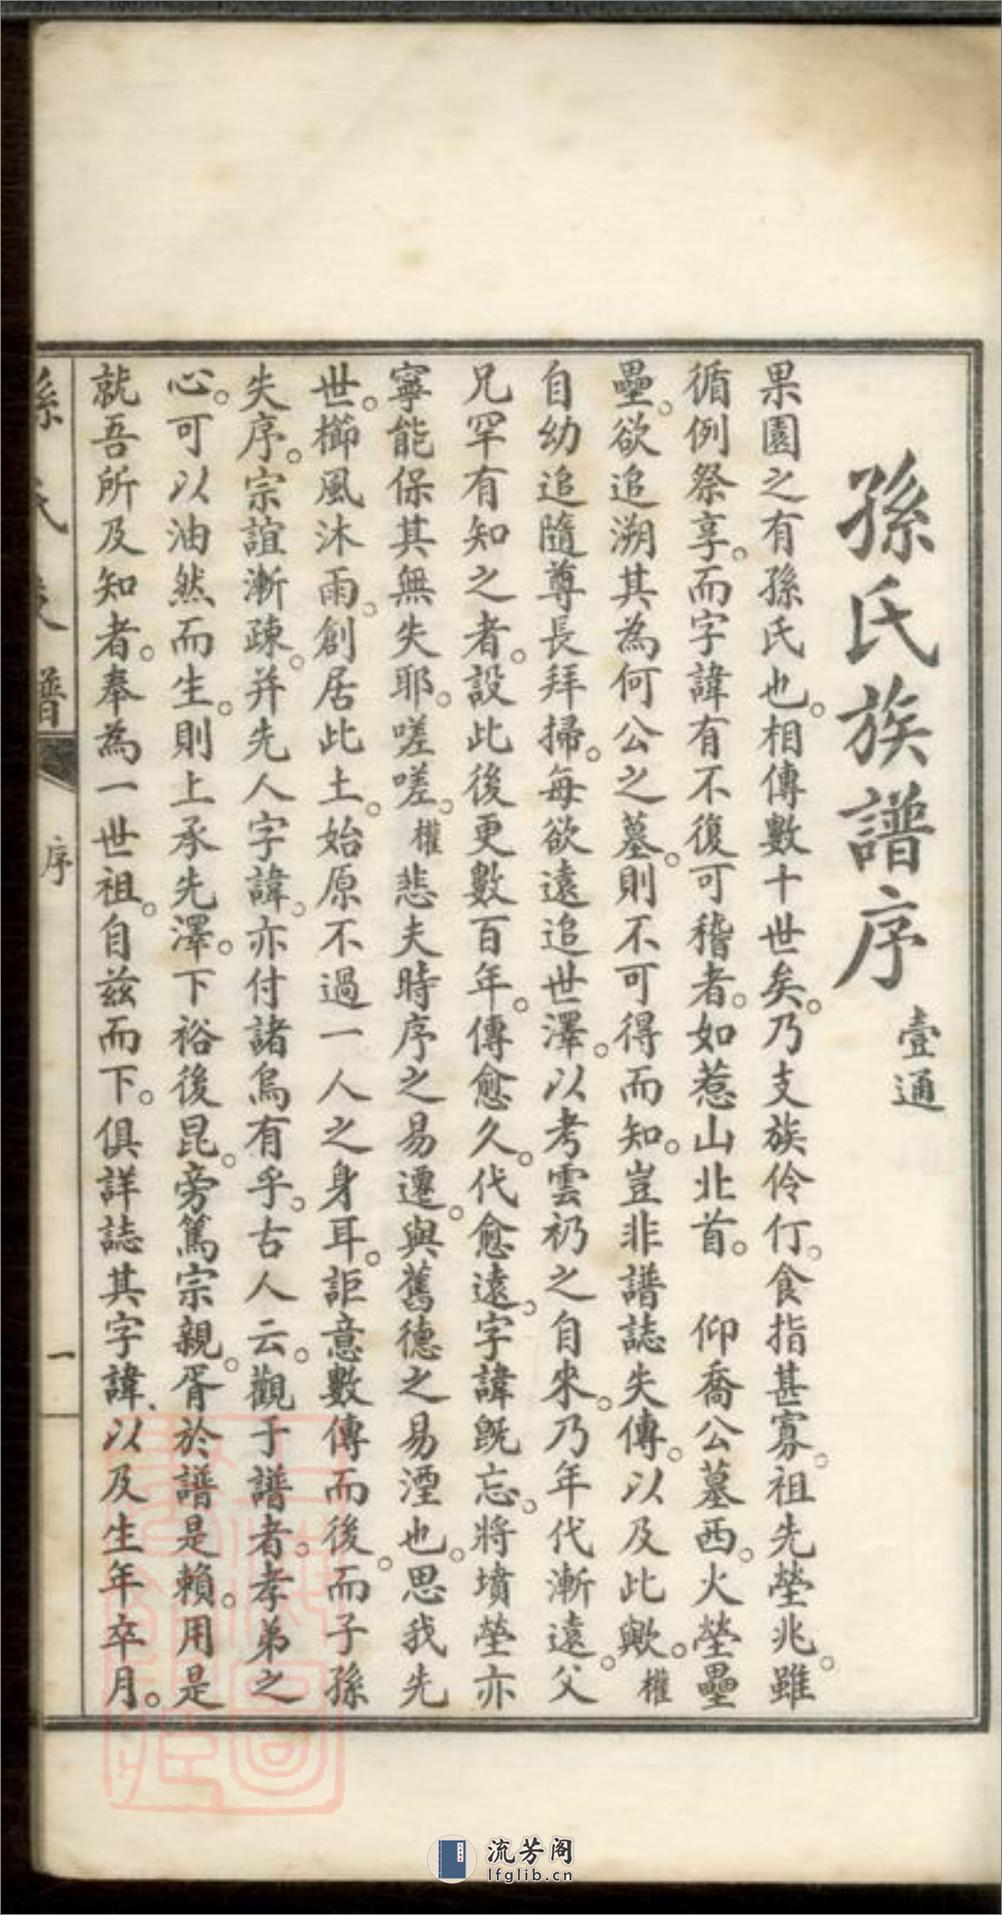 孫氏族譜序 壹通
果園之有孫氏也。相傳數十世矣。乃支族伶仃。食指甚寡。祖先塋兆。雖
循例祭享。而字諱有不復可稽者。如惹山北首。 仰喬公墓西。火塋壘
壘。欲追溯其為何公之墓。則不可得而知。豈非譜誌失傳。以及此歟。權
自幼追隨尊長拜掃。每欲遠追世澤。以考雲礽之自來。乃年代漸遠。父
兄罕有知之者。設此後更數百年。傳愈久。代愈遠。字諱旣忘。將墳塋亦
寧能保其無失耶。嗟嗟。權悲夫時序之易遷。與舊德之易湮也。思我先
世。櫛風沐雨。創居此土。始原不過一人之身耳。詎意數傳而後。而子孫
失序。宗誼漸疎。并先人字諱。亦付諸烏有乎。古人云。觀于譜者。孝弟之
心。可以油然而生。則上承先澤。下裕後昆。旁篤宗親。胥於譜是賴。用是
就吾所及知者。奉為一世祖。自茲而下。俱詳誌其字諱、以及生年卒月。
孫氏族譜 序 一
流芳阁
lfglib.cn